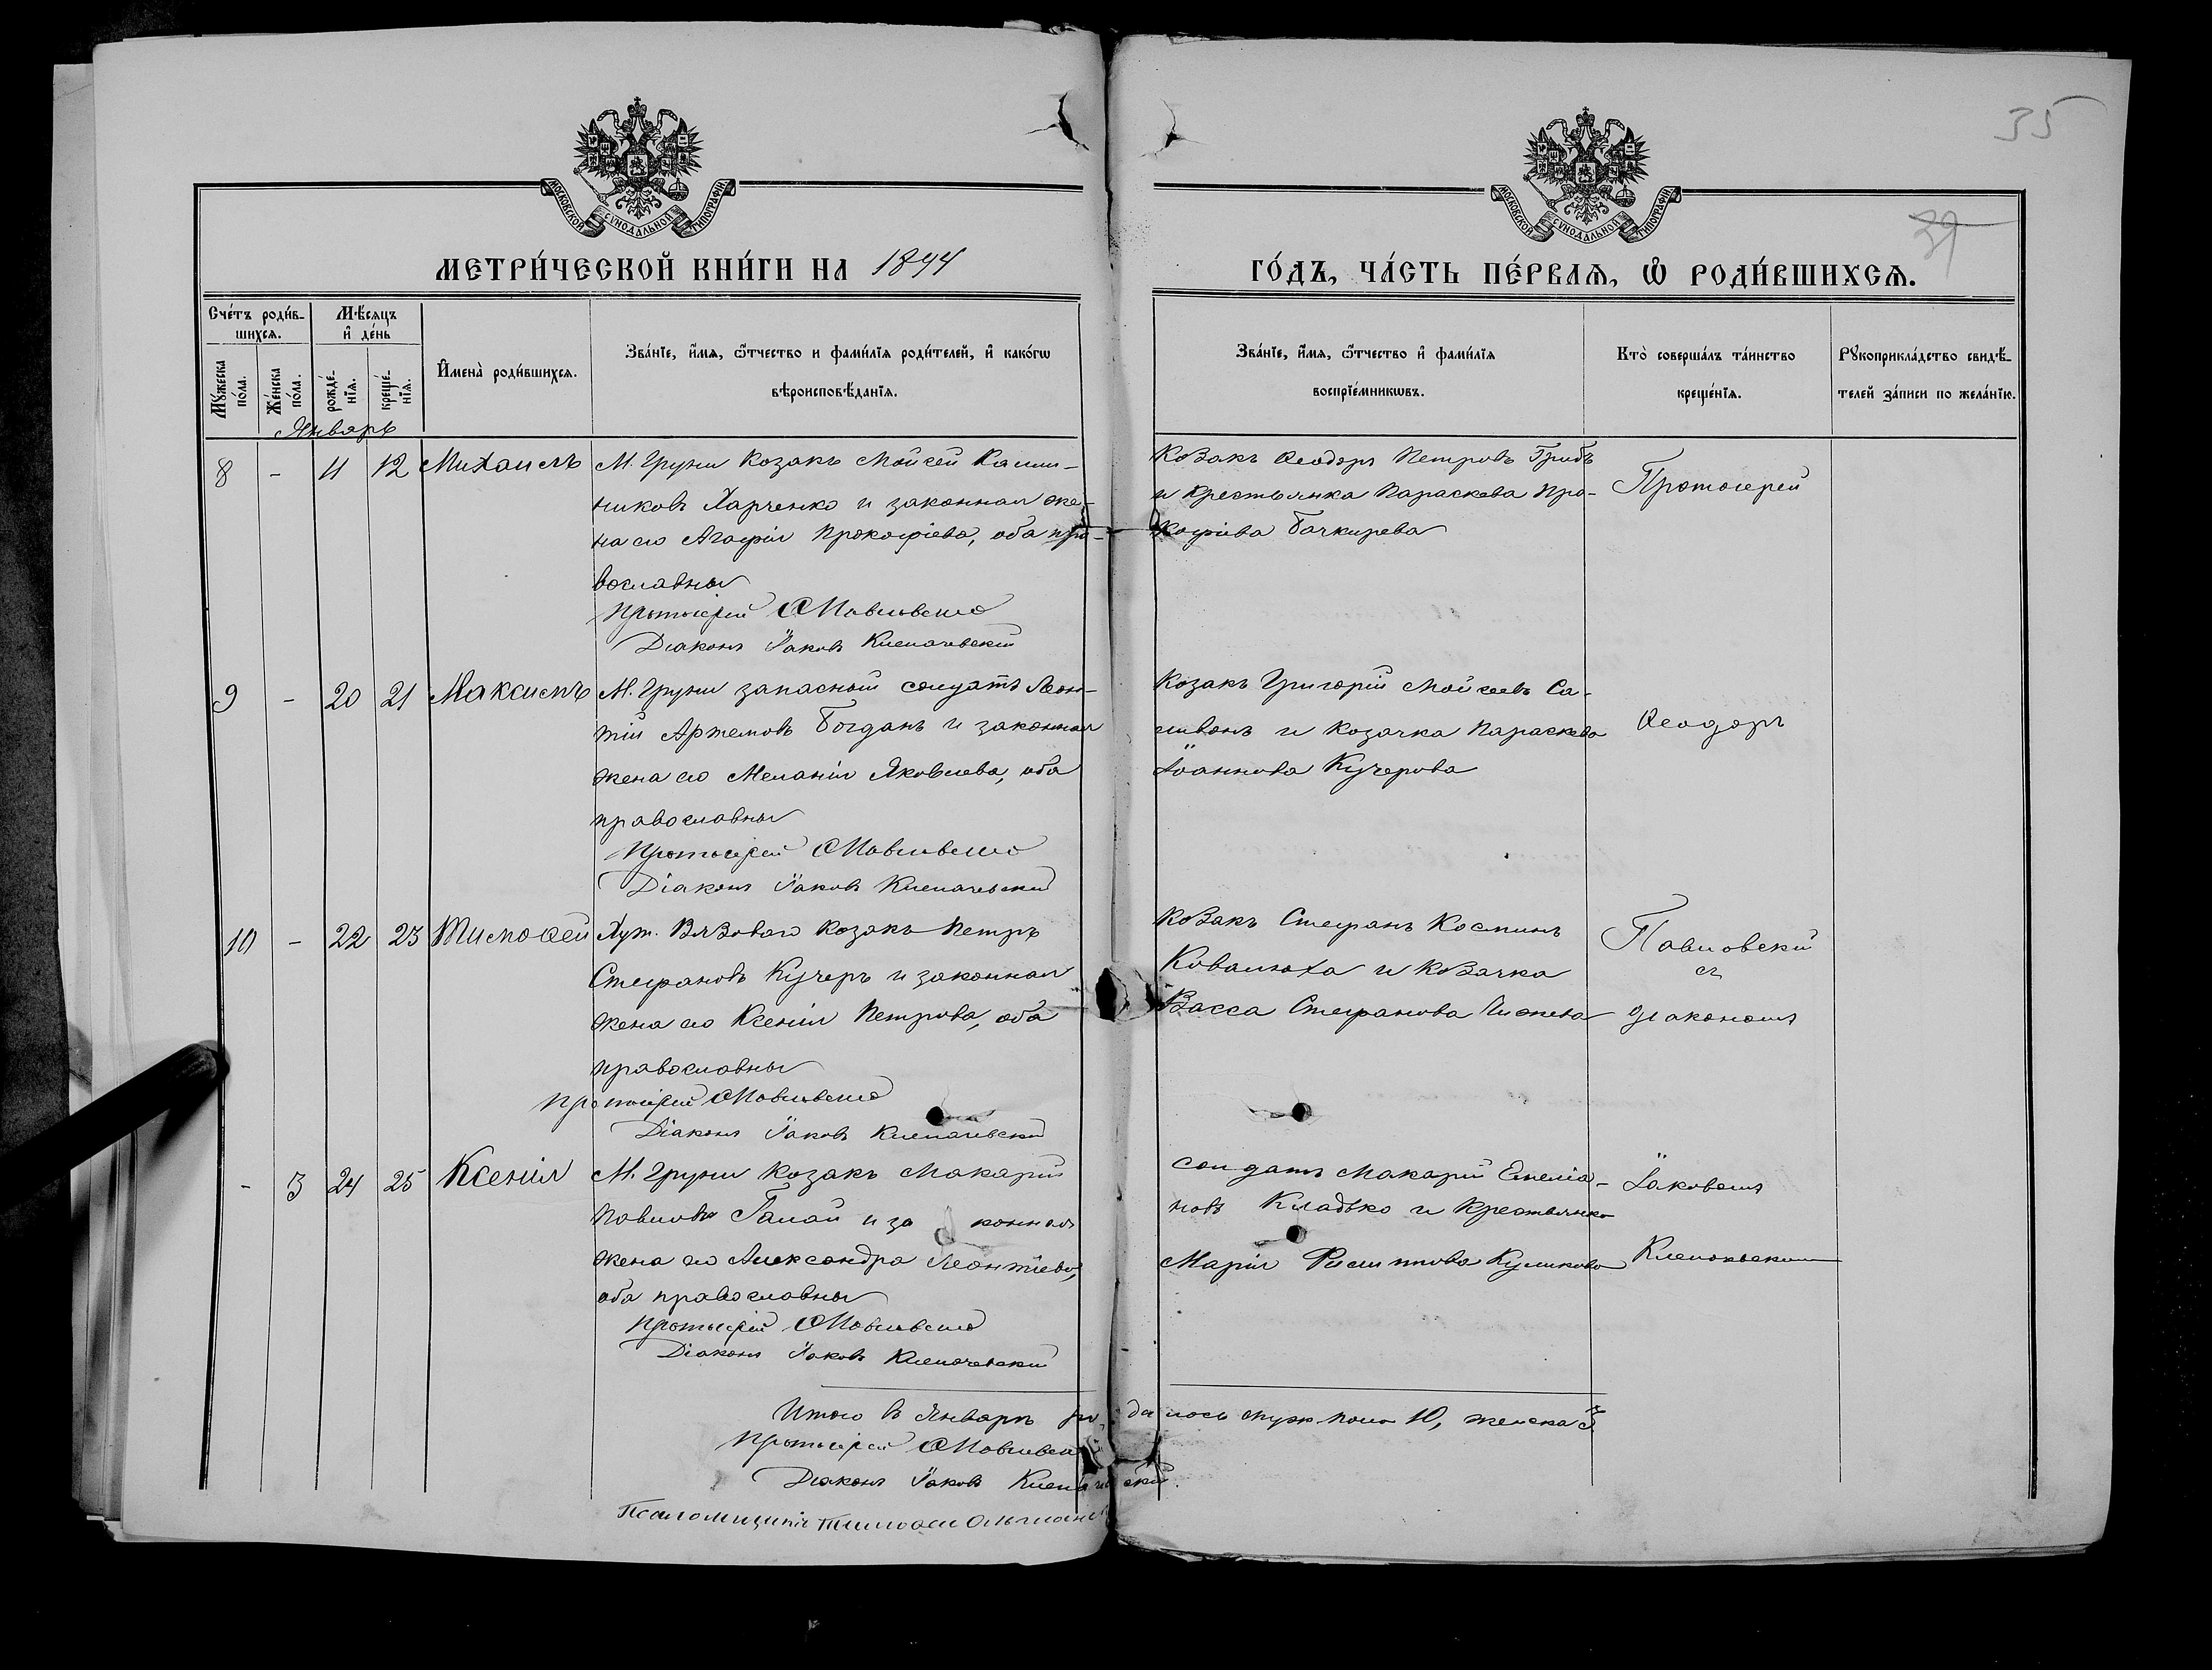 35
39
МОСКОВСКОЙ СѴНОДАЛЬНОЙ ТИПОГРАФІИ
МОСКОВСКОЙ СѴНОДАЛЬНОЙ ТИПОГРАФІИ
МЕТРИ́ЧЕСКОЙ КНИ́ГИ НА 1894
ГО́ДЪ, ЧА́СТЬ ПЕ́РВАѦ, Ѡ҆ РОДИ́ВШИХСѦ.
Сче́тъ роди́в-
шихсѧ.
Мꙋ́жеска
по́ла.
Же́нска
по́ла.
Мѣ́сѧцъ
и҆ де́нь
рожде́-
нїѧ.
креще́-
нїѧ.
И҆мена̀ роди́вшихсѧ.
Зва́нїе, и҆́мѧ, ѻ҆́тчество и фами́лїѧ роди́телей, и҆ како́гѡ
вѣроисповѣ́данїѧ.
Зва́нїе, и҆́мѧ, ѻ҆́тчество и҆ фами́лїѧ
воспрїе́мникѡвъ.
Кто̀ соверша́лъ та́инство
креще́нїѧ.
Рꙋкоприкла́дство свидѣ́-
телей за́писи по жела́нїю.
Январь
8 - 11 12 Михаилъ
М. Груни козакъ Мойсей Калин-
никовъ Харченко и законная же-
на его Агафія Прокофіева, оба пра-
вославны
Протоіерей Ѳ Павловскій
Діаконъ Іаковъ Клепачевскій
Козакъ Ѳеодоръ Петровъ Грибъ
и крестьянка Параскева Про-
кофіева Бочкирева
Протоіерей
9 - 20 21 Максимъ
М. Груни запасный солдатъ Леон-
тій Артемовъ Богданъ и законная
жена его Меланія Яковлева, оба
православны
Протоіерей Ѳ Павловскій
Діаконъ Іаковъ Клепачевскій
Козакъ Григорій Мойсеевъ Са-
ливонъ и козачка Параскева
Іоаннова Кучерова
Ѳеодоръ
10 - 22 23 Тимоѳей
Хут. Вязоваго козакъ Петръ
Стефановъ Кучеръ и законная
жена его Ксенія Петрова, оба
православны
Протоіерей Ѳ Павловскій
Діаконъ Іаковъ Клепачевскій
Козакъ Стефанъ Косминъ
Ковалюха и козачка
Васса Стефанова
Павловскій
съ
діакономъ
- 3 24 25 Ксенія
М. Груни козакъ Макарій
Павловъ Галай и законная
жена его Александра Леонтіева,
оба православны
Протоіерей Ѳ Павловскій
Діаконъ Іаковъ Клепачевскій
Солдатъ Макарій Емеліа-
новъ Кладько и крестьянка
Марія Филиппова Куликова
Іаковомъ
Клепачевским
Итого въ Январѣ родилось муж. пола 10, женска 3.
Протоіерей Ѳ Павловскій
Діаконъ Іаковъ Клепачевскій.
Псаломщикъ Тимоѳей